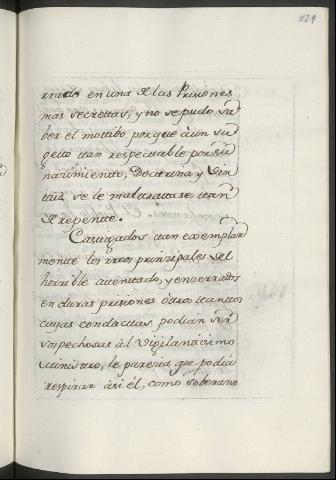 129
rrado en una de las Prisiones
mas secrettas, y no se pudo sa=
ber el mottibo porque â un su=
getto ttan respettable por su
nacimientto, Docttrina, y Vir=
ttud se le malttrattase ttan
de repente.
Casttigados ttan exemplar
mentte los reos prinzipales del
horrible attenttado, y enzerrados
en duras prisiones ôttros ttanttos
cuyas conducttas podian ser
sospechosas âl Vigilanttissimo
Ministtro, le parezia que podia
respirar asi êl, como el soberano